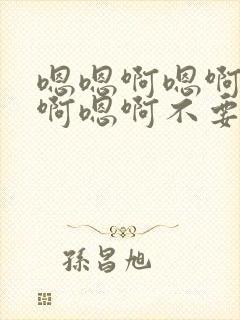 嗯嗯啊嗯啊
啊嗯啊不要
孫昌旭